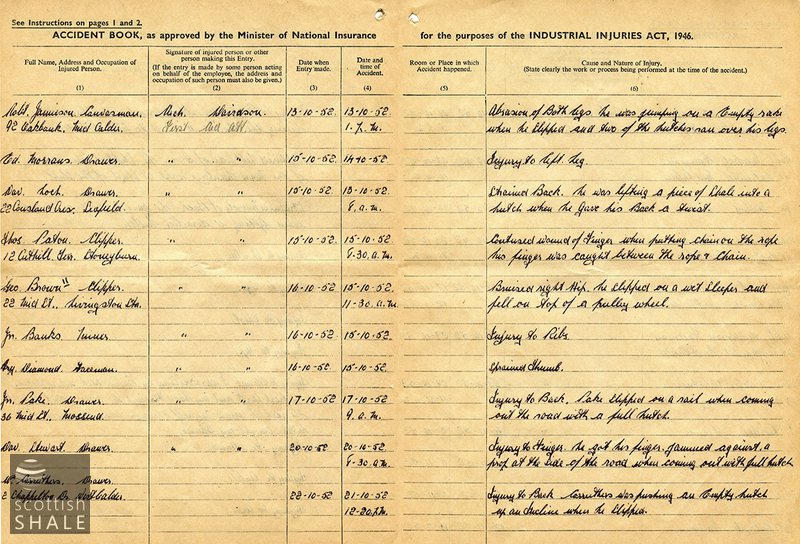 See Instructions on pages 1 and 2.
ACCIDENT BOOK, as approved by the Minister of National Insurance for the purposes of the INDUSTRIAL INJURIES ACT, 1946.
Full Name, Address and Occupation of Injured Person.
(1)
Signature of injured person or other person making this Entry.
(If the entry is made by some person acting on behalf of the employee, the address and occupation of such person must also be given.)
(2)
Date when Entry made.
(3)
Date and time of Accident.
(4)
Room or Place in which Accident happened.
(5)
Cause and Nature of Injury.
(State clearly the work or process being performed at the time of the accident.)
(6)
Robt. Jamieson Davidson 13-10-52 13-10-52. Abrasion of Both Legs. he was jumping on a Empty rake
92 Oakbank, Mid Calder. First Aid att. 1. P.M. when he slipped and two of the hutches ran over his legs.
Ed. Morrans Drawer " " 15-10-52. 14-10-52. Injury to left Leg.
Dav. Loch. Drawer. " " 15-10-52 13-10-52. Strained Back. he was lifting a piece of Shale into a
22 Cousland Cres, Seafield. 8. a.m. hutch when he gave his Back a twist.
Thos. Paton. Clipper. " " 15-10-52. 15-10-52. Contused wound of Finger when putting chain on the rope
12 Cuthill Terr. Stoneyburn. 8-30. a.m. his finger was caught between the rope & Chain.
Geo. Brown " Clipper. " " 16-10-52 15-10-52. Bruised right Hip. he slipped on a wet sleeper and
22 Mid St., Livingston Stn. 11-30. a.m. fell on top of a pulley wheel.
Jn. Banks Miner. " " 16-10-52 15-10-52. Injury to Ribs.
Diamond Faceman. " " 16-10-52. 15-10-52. Sprained Thumb.
Jn. Pake Drawer " " 17-10-52 17-10-52 Injury to Back. Pake slipped on a rail when coming
36 Mid St., Mossend. 9. a.m. out the road with a full hutch.
Dav. Stewart Drawer. " " 20-10-52 20-10-52. Injury to Finger. he got his finger jammed against a
8-30. a.m. prop at the side of the road when coming out with full hutch
Wm. Carruthers. Drawer 22-10-52 21-10-52 Injury to Back Carruthers was pushing an Empty hutch
2 Chapelton Dr. West Calder. 12-20. P.M. up an Incline when he slipped.
scottish
SHALE